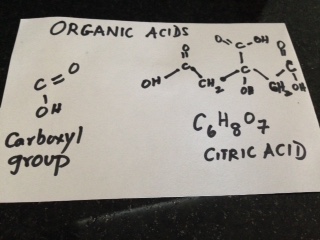 ORGANIC ACIDS
O C OH
O
C O
OH
Carboxyl
group
O
OH C CH2 C CH2 C OH
OH
O
C6H8O7
CITRIC ACID